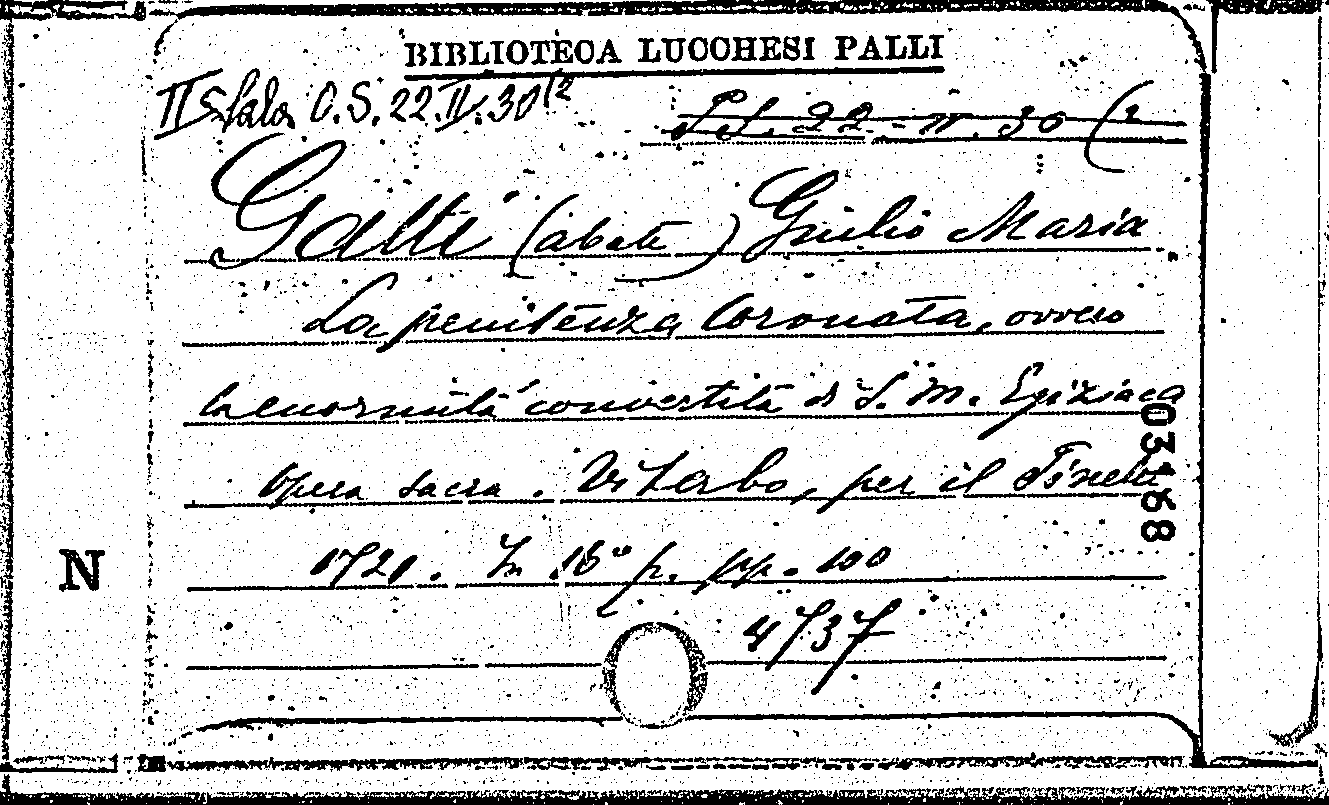 BIBLIOTECA LUCCHESI PALLI
II Sala O.S. 22.II.30(2
22. II. 30 (2
Gatti (abate) Giulio Maria
La penitenza Coronata, ovvero
la enormità convertita di S. M. Egiziaca
Opera sacra. Viterbo, per il
03168
1721. In 16° p. pp. 100
N
4737